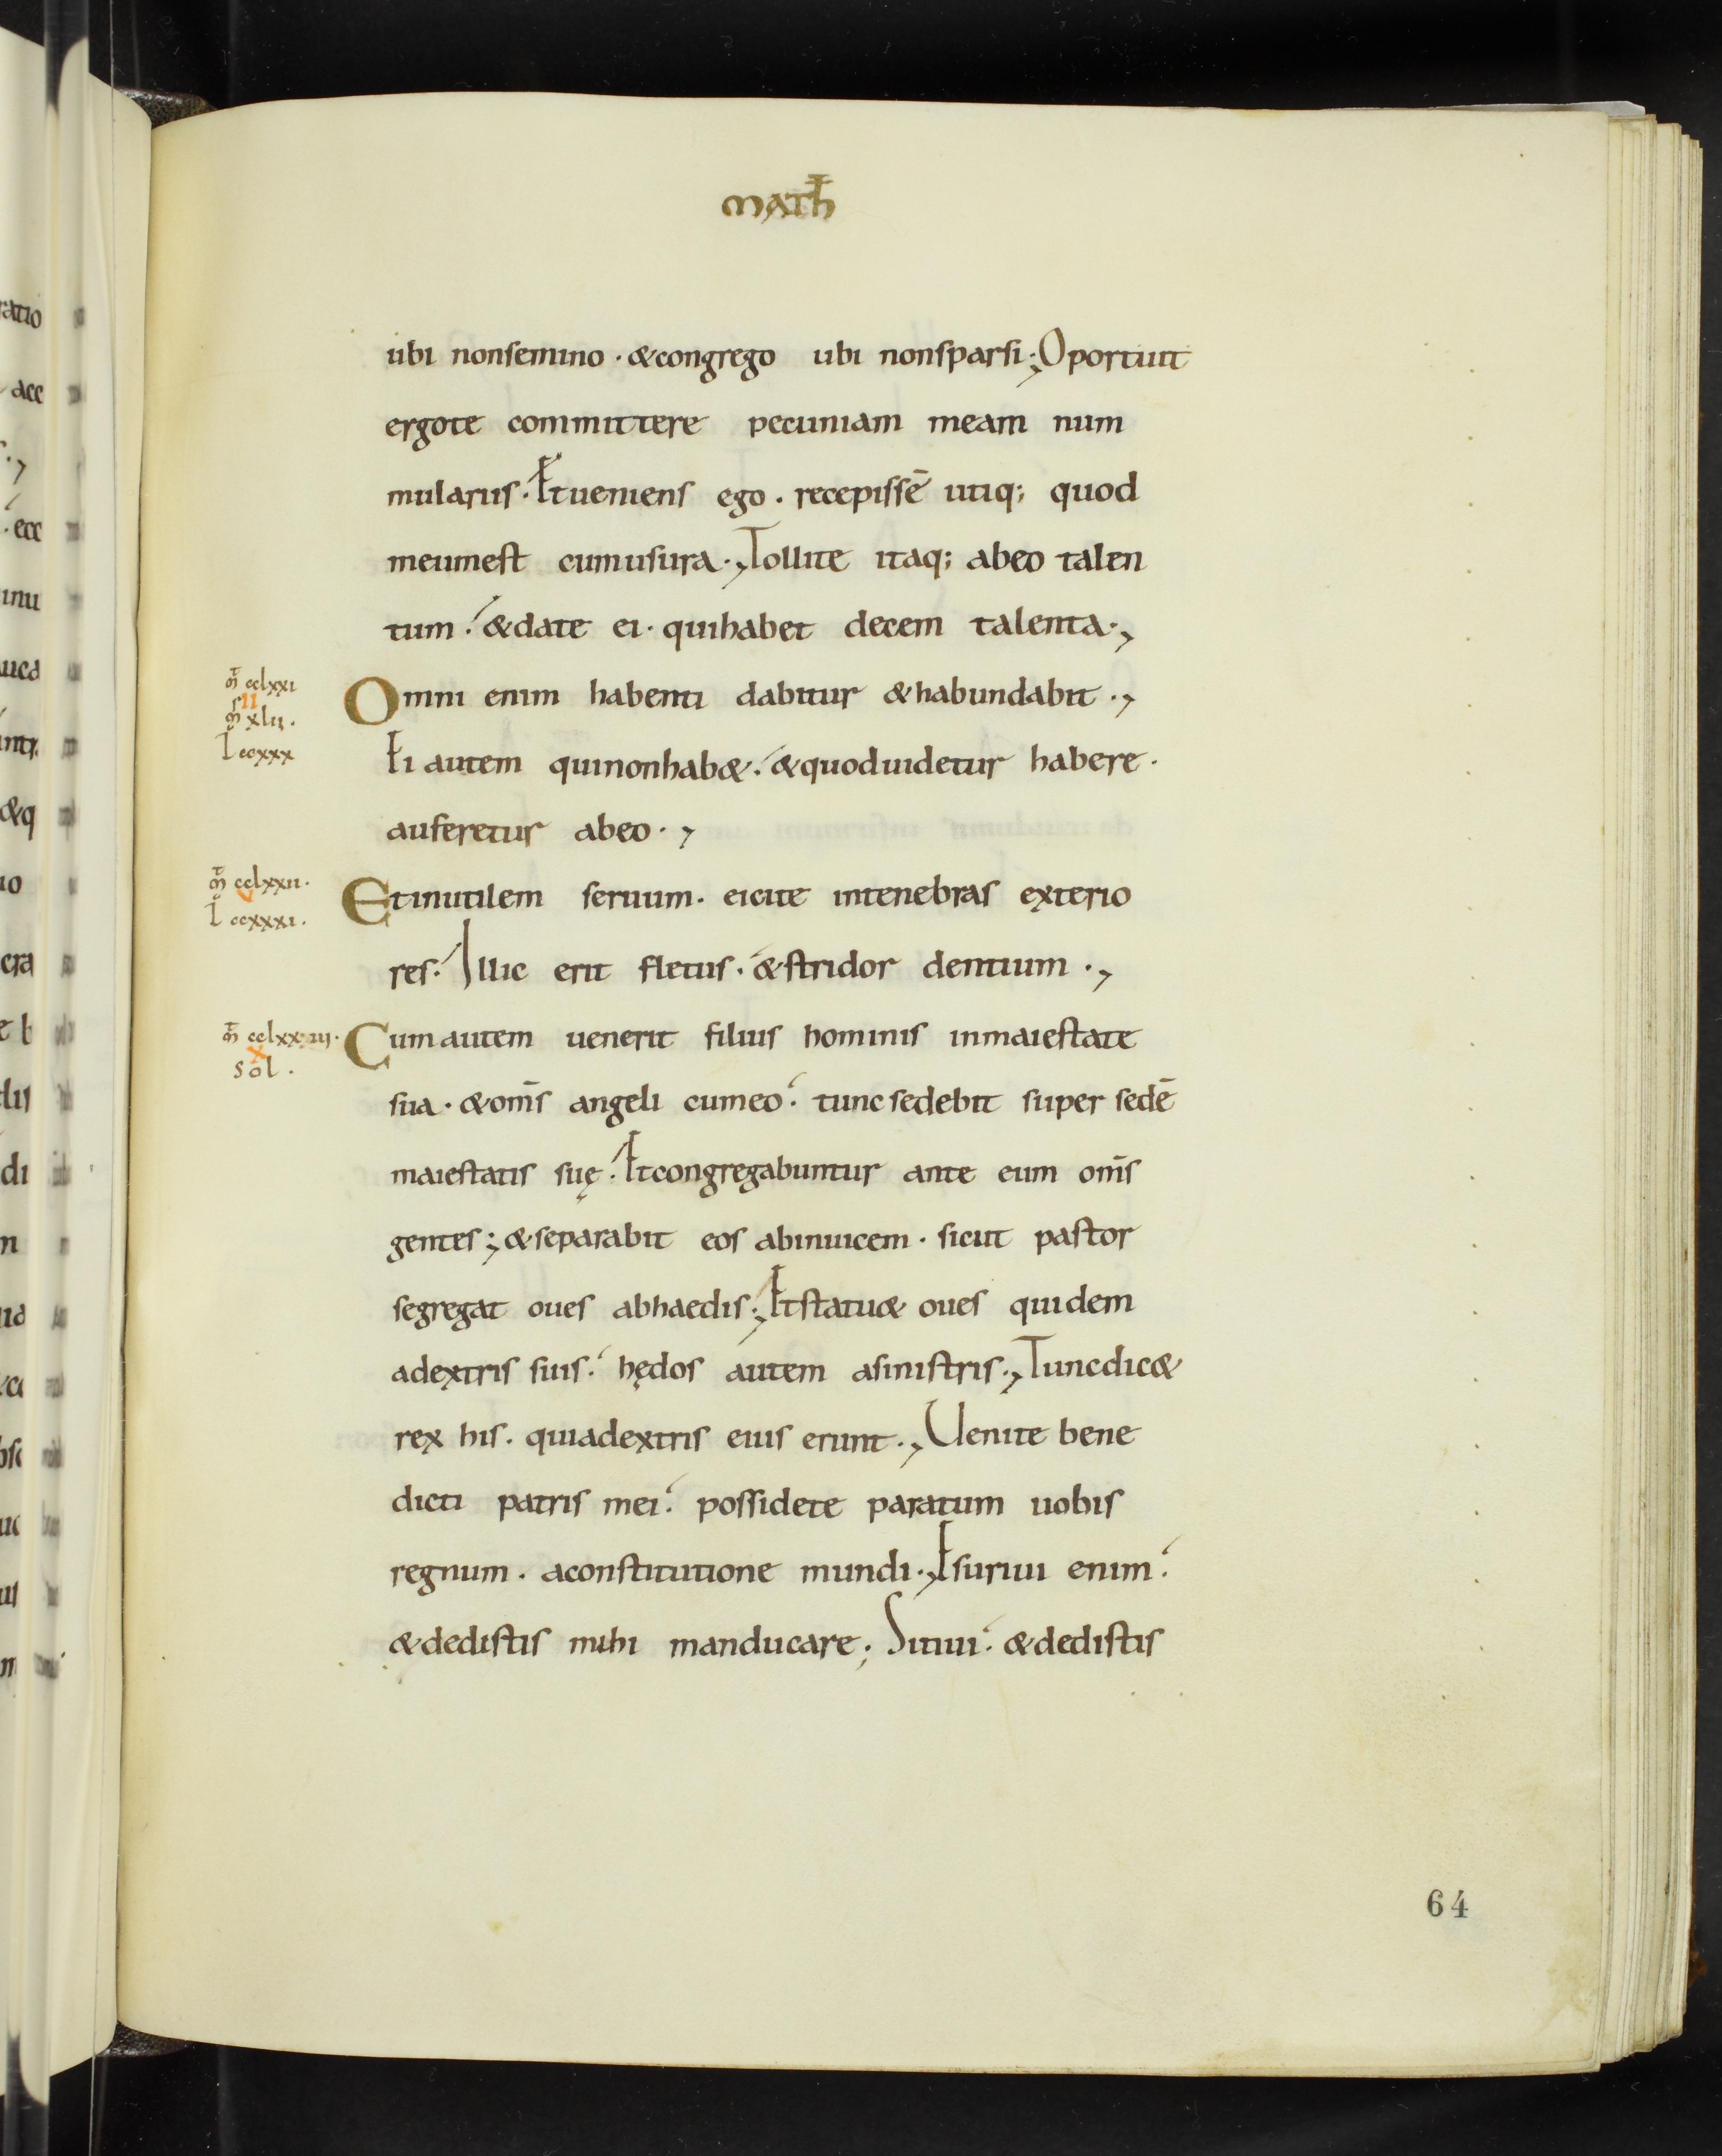 math̄
ubi nonsemino · &congrego ubi nonsparsi; Oportuit
ergote committere pecuniam meam num
mulariis · Et ueniens ego · recepissē utiq; quod
meumest cumusura ·, Tollite itaq; abeo talen
tum · &date ei · quihabet decem talenta ·,
m̄ cclxxi
II
m̄ xlii ·
l ccxxx
Omni enim habenti dabitur &habundabit ·,
Ei autem quinonhab& · &quoduidetur habere ·
auferetur abeo ·,
m̄ cclxxii ·
V
l ccxxxi ·
Etinutilem seruum · eicite intenebras exterio
res · Illic erit fletus · &stridor dentium ·,
m̄ cclxxiii ·
X
sol ·
Cum autem uenerit filius hominis inmaiestate
sua · &om̄s angeli cumeo · tunc sedebit super sedē
maiestatis suę · Etcongregabuntur ante eum om̄s
gentes; &separabit eos abinuicem · sicut pastor
segregat oues abhaedis; Etstatu& oues quidem
adextris suis · hędos autem asinistris ·, Tuncdic&
rex his · quiadextris eius erunt ·, Uenite bene
dicti patris mei · possidete paratum uobis
regnum · aconstitutione mundi ·, Esuriui enim ·
&dedistis mihi manducare; Sitiui · &dedistis
64